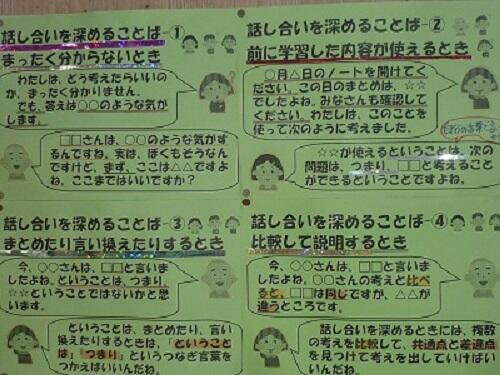 話し合いを深めることば-①
まったく分からないとき
わたしは、どう考えたらいいの
か、まったく分かりません。
でも、答えは○○のような気が
します。
□□さんは、○○のような気がす
るんですね。実は、ぼくもそうなんで
すけど、まず、ここは△△ですよ
ね。ここまではいいですか？
話し合いを深めることば-②
前に学習した内容が使えるとき
○月△日のノートを開けてくだ
さい。この日のまとめは、☆☆
でしたよね。みなさんも確認して
ください。わたしは、このことを
使って次のように考えました。
☆☆が使えるということは、次の
問題は、つまり、□□と考えること
ができるということですよね。
話し合いを深めることば-③
まとめたり言い換えたりするとき
今、○○さんは、□□と言いま
したよね。ということは、つまり、
☆☆ということではないかと思
います。
ということは、まとめたり、言い
換えたりするときは、「ということ
は」「つまり」というつなぎ言葉を
つかえばいいんだね。
話し合いを深めることば-④
比較して説明するとき
今、○○さんは、□□と言いま
したよね。○○さんの考えと比べ
ると、□□は同じですが、△△が
違うところです。
話し合いを深めるときには、複数
の考えを比較して、共通点と差違点
を見つけて考えを出していけばい
いんだね。